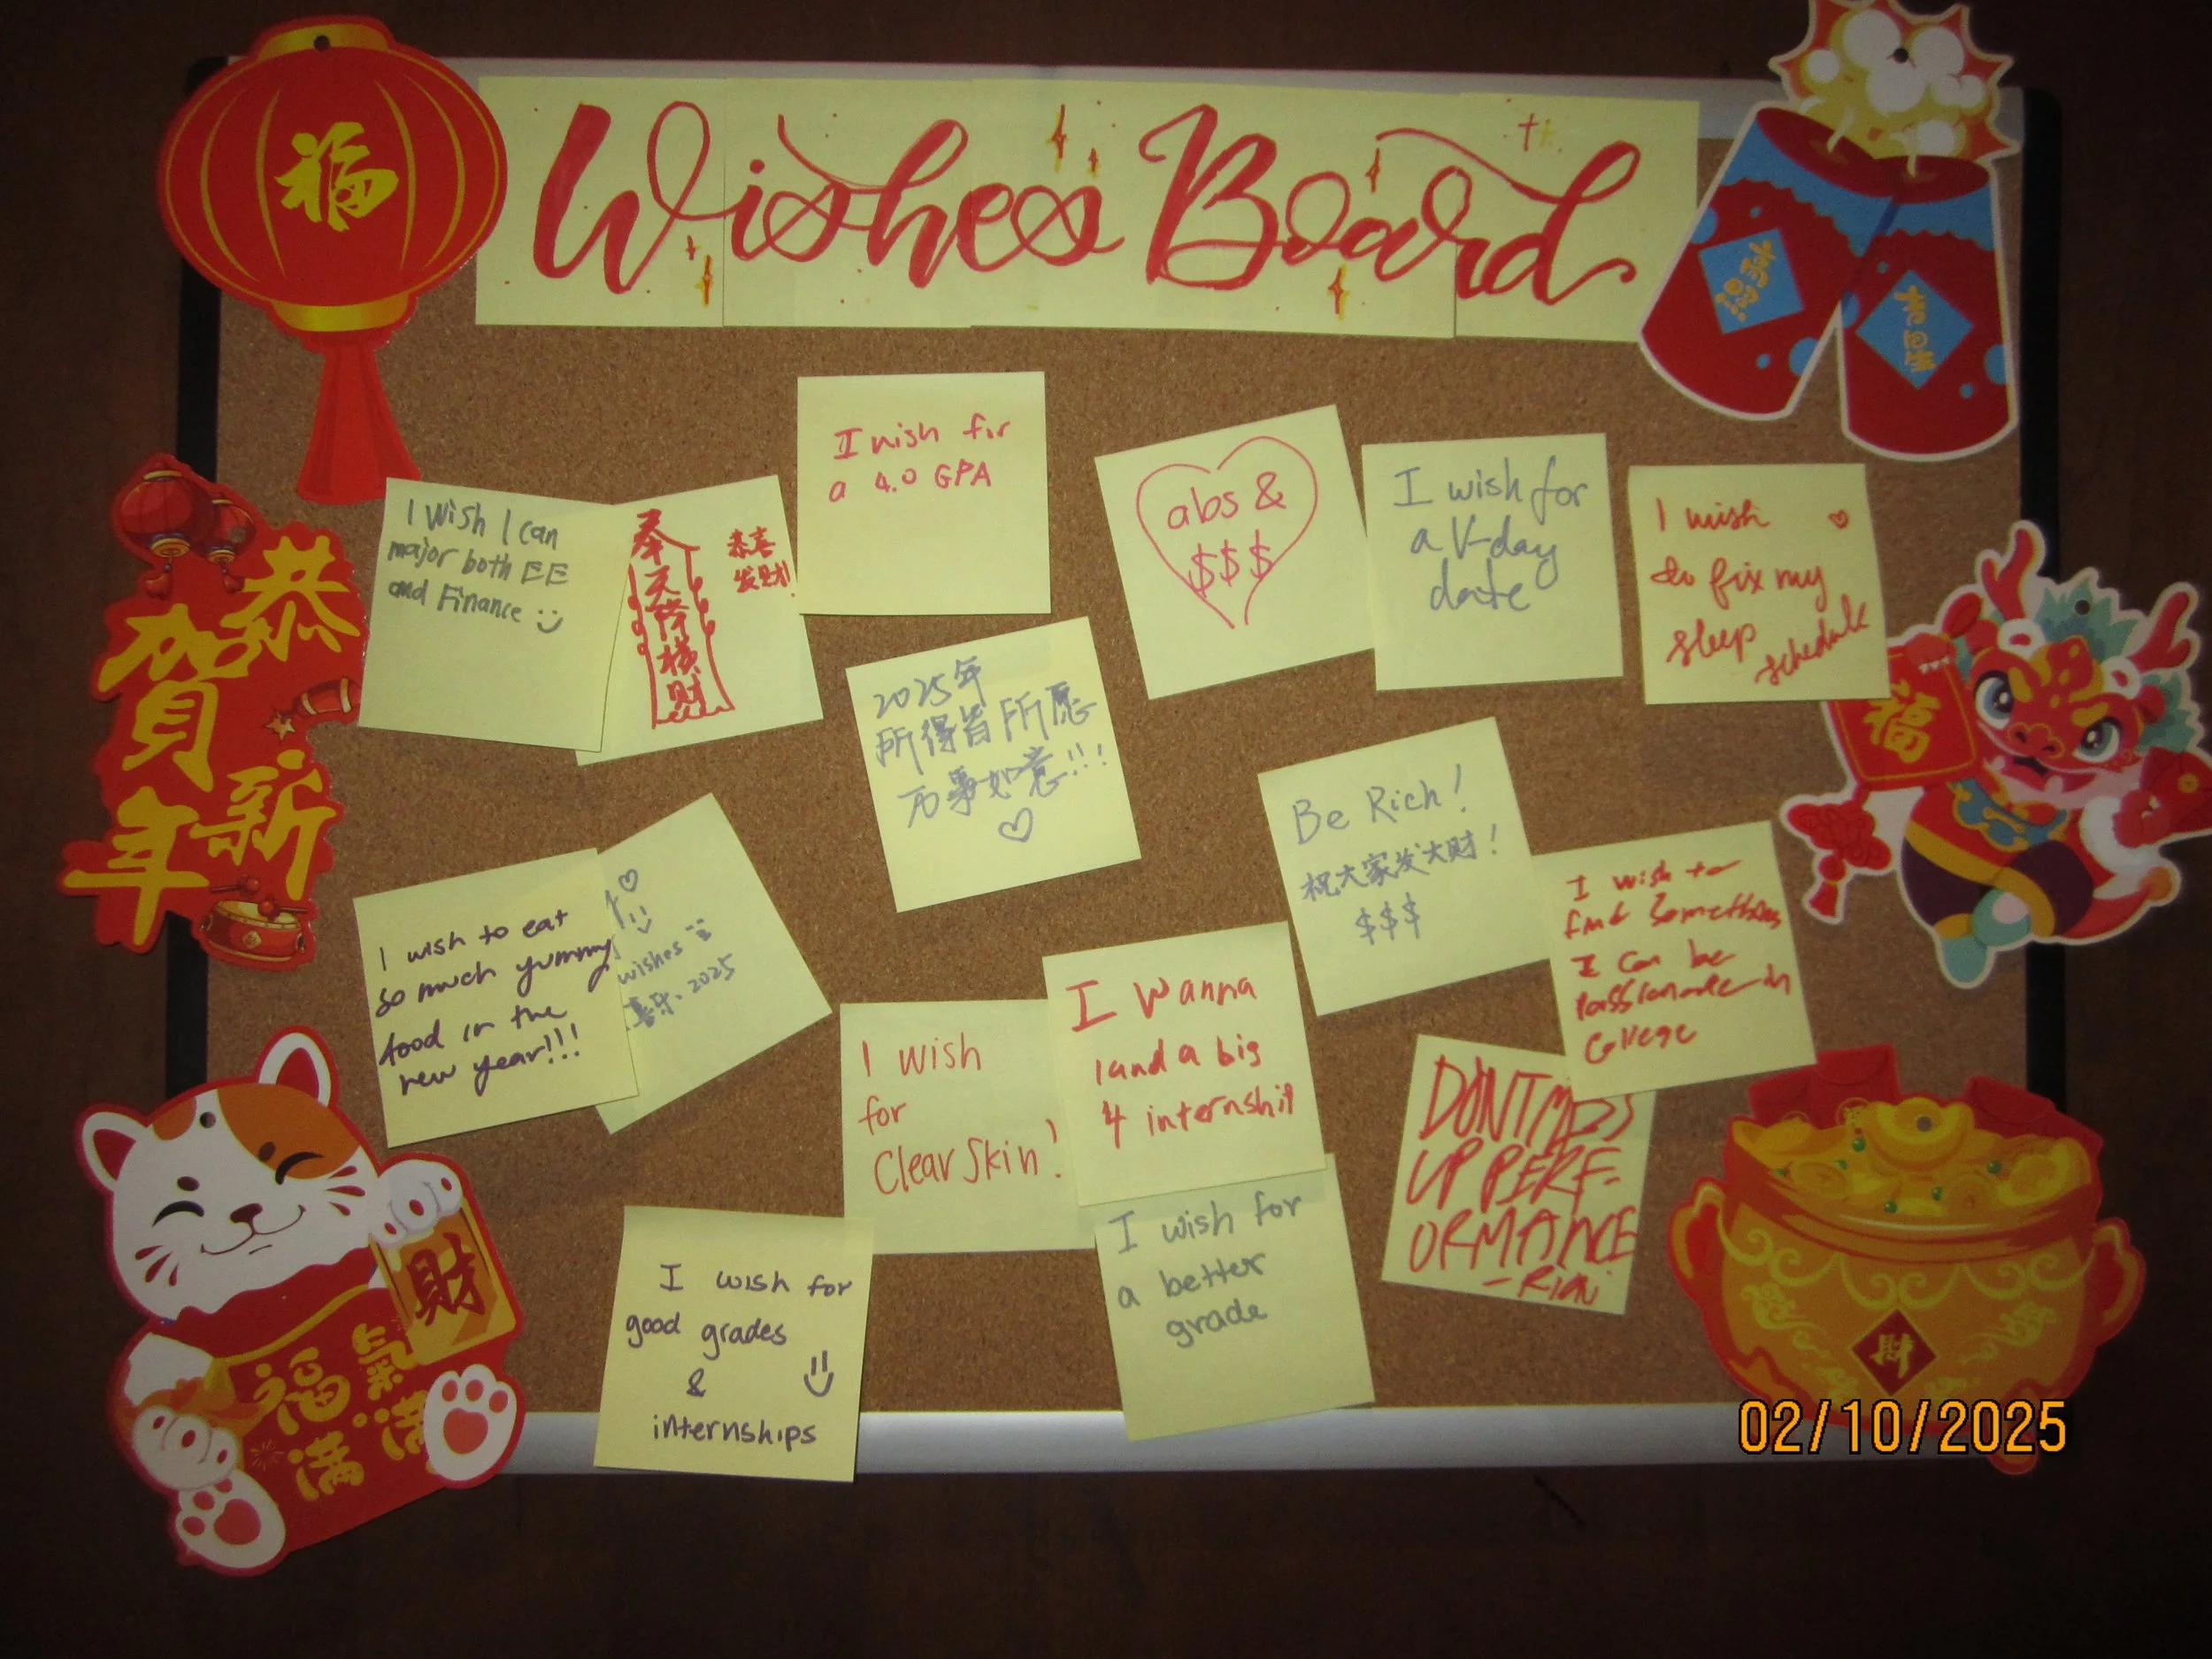 福
Wishes Board
恭
賀
新
年
I wish for
a 4.0 GPA
I Wish I Can
major both EE
and Finance
奉
天
降
横
财
恭喜
发财!
abs &
$$$
I wish for
a V-day
date
I wish
to fix my
sleep
schedule
福
2025年
所得皆所愿
万事如意!!!
Be Rich!
祝大家发大财!
$$$
I wish to eat
so much yummy
food in the
new year!!!
wishes
喜乐、2025
I wish to
find something
I can be
passionate in
College
I wish
for
Clear Skin!
I wanna
land a big
4 internship
DONT MESS
UP PERF-
ORMANCE
I wish for
a better
grade
I wish for
good grades
&
internships
財
福氣
满满
財
02/10/2025